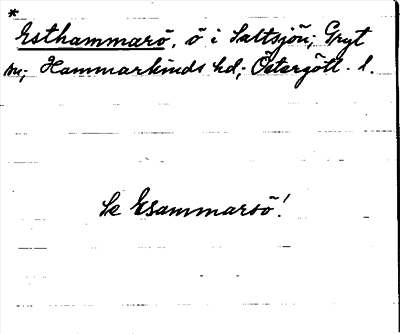 *
Esthammarö, ö i Saltsjön; Gryt
sn; Hammarkinds hd; Östergötl. l.
Se Esammarsö!